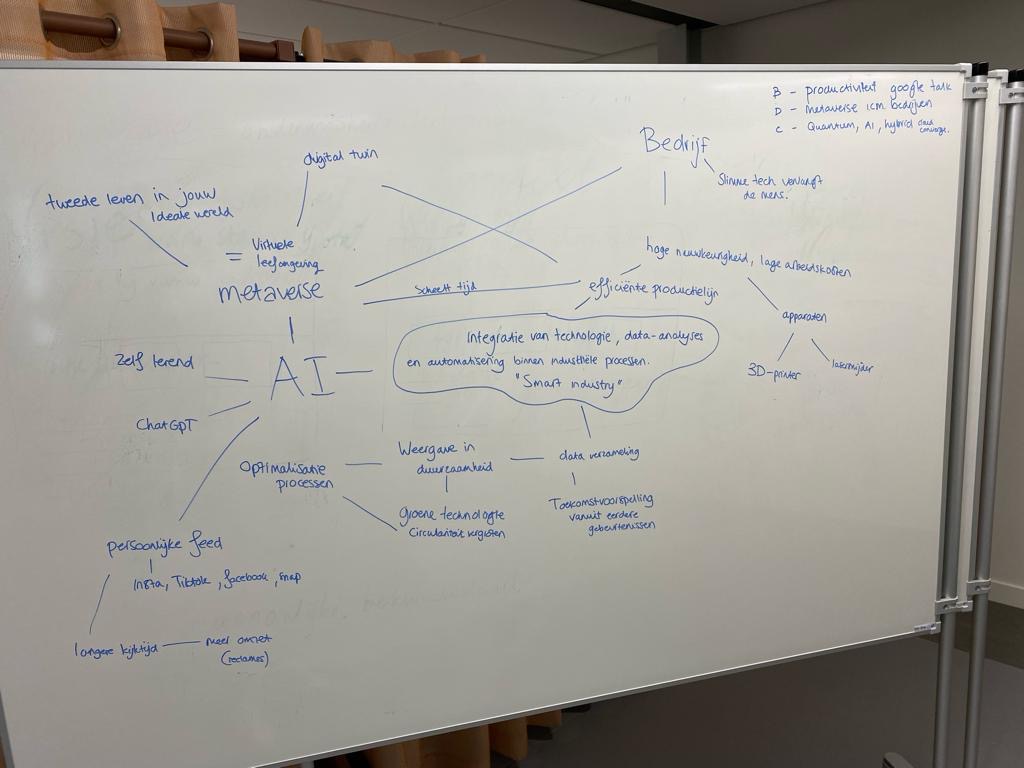 B - productiviteit google talk
D - Metaverse icm bedrijven
C - Quantum, AI, hybrid cloud
Bedrijf
Slimme tech vervangt
de mens.
digital twin
tweede leven in jouw
Ideale wereld
= Virtuele
leefomgeving
metaverse
scheelt tijd
hoge nauwkeurigheid, lage arbeidskosten
efficiënte productielijn
apparaten
3D-printer
lasersnijder
Integratie van technologie, data-analyses
en automatisering binnen industriële processen.
"Smart industry"
Zelf lerend
AI
ChatGPT
Optimalisatie
processen
Weergave in
duurzaamheid
data verzameling
groene technologie
Circulariteit vergroten
Toekomstvoorspelling
vanuit eerdere
gebeurtenissen
persoonlijke feed
Insta, Tiktok, facebook, snap
langere kijktijd
meer omzet
(reclames)